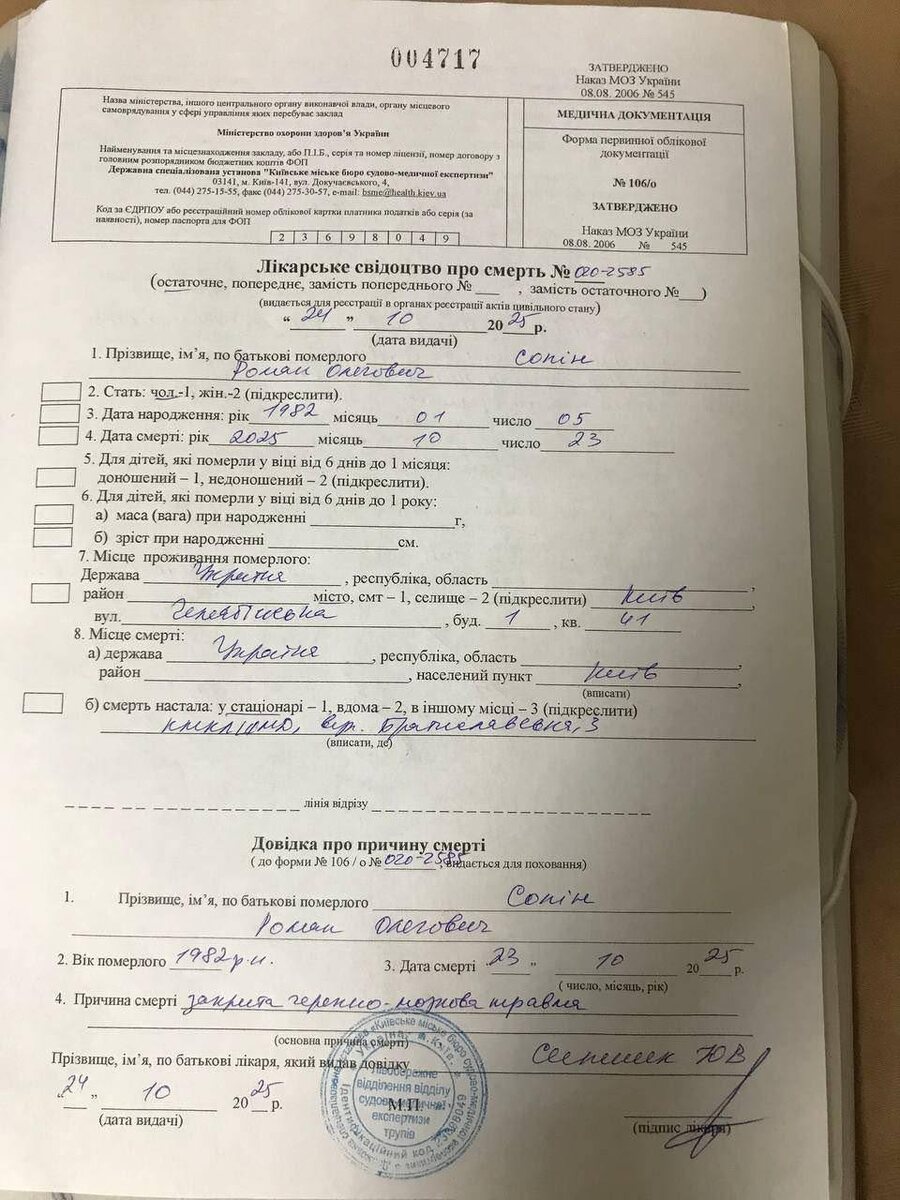 004717
ЗАТВЕРДЖЕНО
Наказ МОЗ України
08.08. 2006 № 545
Назва міністерства, іншого центрального органу виконавчої влади, органу місцевого
самоврядування у сфері управління яких перебуває заклад
Міністерство охорони здоров'я України
Найменування та місцезнаходження закладу, або П.І.Б., серія та номер ліцензії, номер договору з
головним розпорядником бюджетних коштів ФОП
Державна спеціалізована установа "Київське міське бюро судово-медичної експертизи"
03141, м. Київ-141, вул. Докучаєвського, 4,
тел. (044) 275-15-55, факс (044) 275-30-57, e-mail: bsme@health.kiev.ua
Код за ЄДРПОУ або реєстраційний номер облікової картки платника податків або серія (за
наявності), номер паспорта для ФОП
2 3 6 9 8 0 4 9
МЕДИЧНА ДОКУМЕНТАЦІЯ
Форма первинної облікової
документації
№ 106/о
ЗАТВЕРДЖЕНО
Наказ МОЗ України
08.08. 2006 № 545
Лікарське свідоцтво про смерть № 020-2585
(остаточне, попереднє, замість попереднього № ___ , замість остаточного №___)
(видається для реєстрації в органах реєстрації актів цивільного стану)
" 24 " 10 2025 р.
(дата видачі)
1. Прізвище, ім'я, по батькові померлого Сопін
Роман Олегович
2. Стать: чол.-1, жін.-2 (підкреслити).
3. Дата народження: рік 1982 місяць 01 число 05
4. Дата смерті: рік 2025 місяць 10 число 23
5. Для дітей, які померли у віці від 6 днів до 1 місяця:
доношений – 1, недоношений – 2 (підкреслити).
6. Для дітей, які померли у віці від 6 днів до 1 року:
а) маса (вага) при народженні ___ г,
б) зріст при народженні ___ см.
7. Місце проживання померлого:
Держава Україна , республіка, область ___ ,
район ___ місто, смт – 1, селище – 2 (підкреслити) Київ ,
вул. , буд. 1 , кв. 41
8. Місце смерті:
а) держава Україна , республіка, область ___ ,
район ___ , населений пункт Київ ,
(вписати)
б) смерть настала: у стаціонарі – 1, вдома – 2, в іншому місці – 3 (підкреслити)
вул. Братиславська, 3
(вписати, де)
лінія відрізу
Довідка про причину смерті
( до форми № 106 / о № 020-2585 , видається для поховання)
1. Прізвище, ім'я, по батькові померлого Сопін
Роман Олегович
2. Вік померлого 1982 р.н. 3. Дата смерті " 23 " 10 2025 р.
( число, місяць, рік)
4. Причина смерті закрита черепно-мозкова травма
(основна причина смерті)
Прізвище, ім'я, по батькові лікаря, який видав довідку
" 24 " 10 2025 р.
М.П.
(дата видачі)
(підпис лікаря)
Україна, м. Київ
Лівобережне
відділення відділу
експертизи
трупів